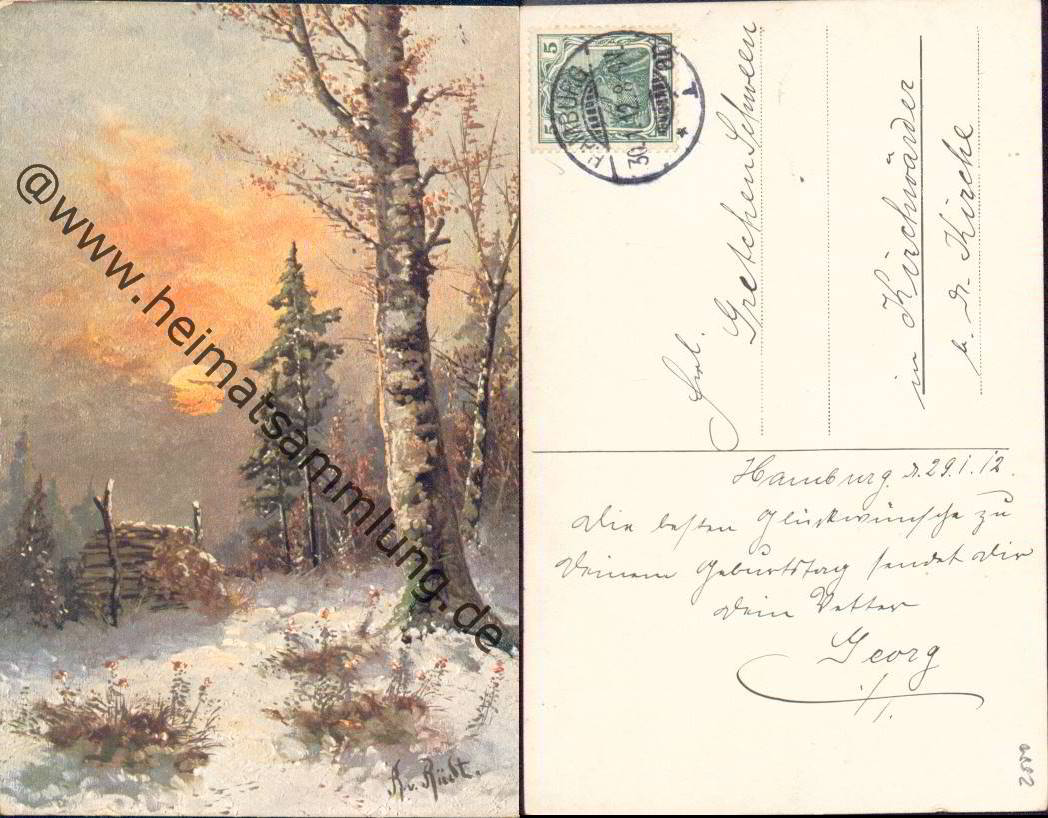 @www.heimatsammlung.de
R. v. Rüdt.
5 5
HAMBURG
30 12 8-
1
*
Frl.
Gretchen Schween
in Kirchwärder
b. dr. Kirche
Hamburg d. 29.1.12.
Die besten Glückwünsche zu
Deinem Geburtstag sendet Dir
Dein Vetter
Georg